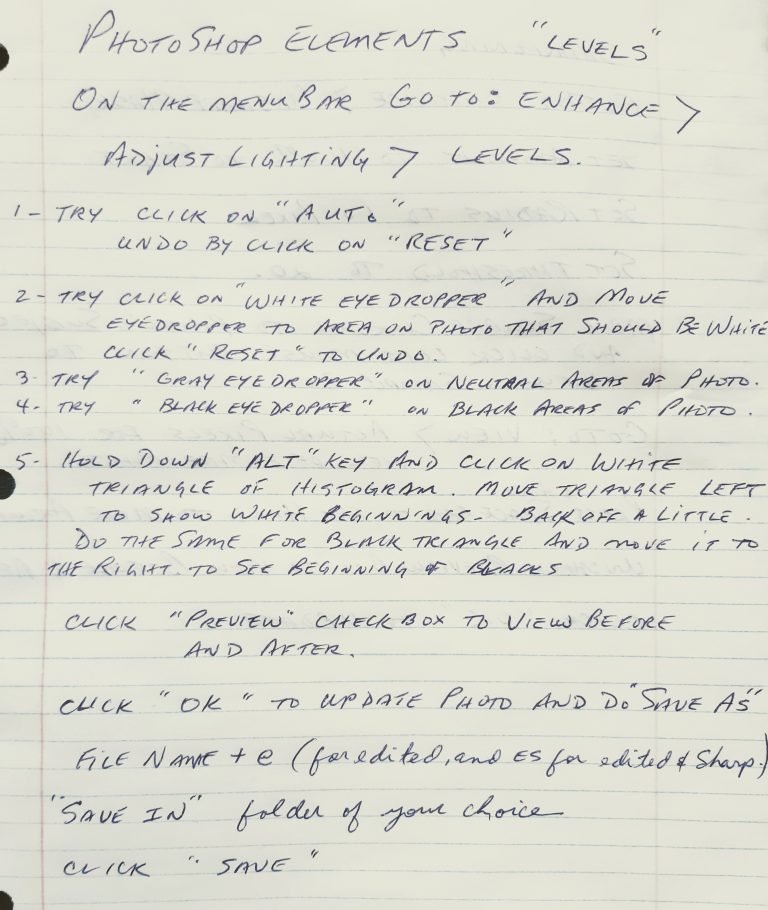 PHOTOSHOP ELEMENTS "LEVELS"
ON THE MENU BAR GO TO: ENHANCE >
ADJUST LIGHTING > LEVELS.
1- TRY CLICK ON "AUTO"
UNDO BY CLICK ON "RESET"
2- TRY CLICK ON "WHITE EYEDROPPER" AND MOVE
EYEDROPPER TO AREA ON PHOTO THAT SHOULD BE WHITE
CLICK "RESET" TO UNDO
3- TRY "GRAY EYEDROPPER" ON NEUTRAL AREAS OF PHOTO.
4- TRY "BLACK EYEDROPPER" ON BLACK AREAS OF PHOTO.
5- HOLD DOWN "ALT" KEY AND CLICK ON WHITE
TRIANGLE OF HISTOGRAM. MOVE TRIANGLE LEFT
TO SHOW WHITE BEGINNINGS- BACK OFF A LITTLE.
DO THE SAME FOR BLACK TRIANGLE AND MOVE IT TO
THE RIGHT TO SEE BEGINNING OF BLACKS
CLICK "PREVIEW" CHECK BOX TO VIEW BEFORE
AND AFTER.
CLICK "OK" TO UPDATE PHOTO AND DO "SAVE AS"
FILE NAME + e (for edited, and ES for edited & Sharp.)
"SAVE IN" folder of your choice
CLICK "SAVE"